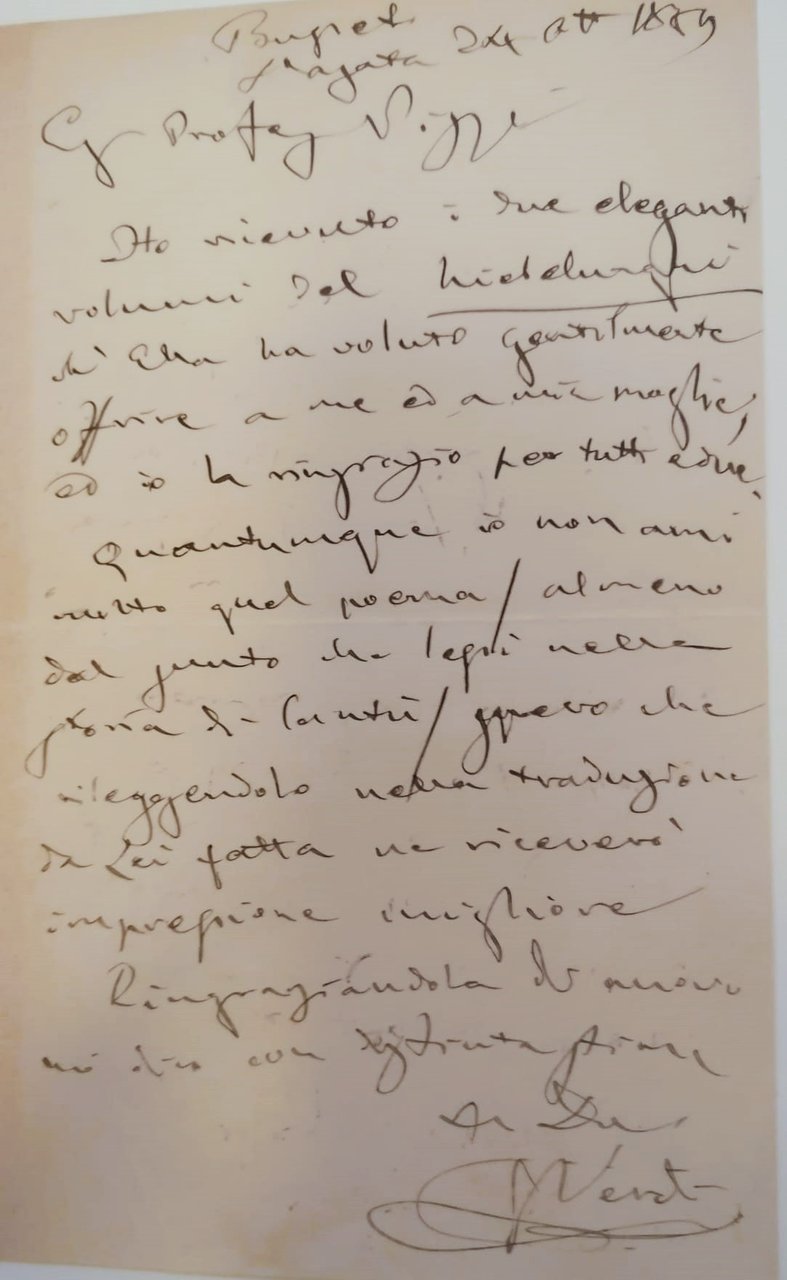 Busseto
S.Agata 24 Ott 1889
Eg Profess Pizzi
Ho ricevuto i due eleganti
volumi del Nibelunghi
ch' Ella ha voluto gentilmente
offrire a me ed a mia moglie,
ed io la ringrazio per tutti e due.
Quantunque io non ami
molto quel poema / almeno
dal punto che lessi nella
storia di Cantù / spero che
rileggendolo nella traduzione
da Lei fatta ne riceverò
impressione migliore
Ringraziandola di nuovo
mi dico con distinta stima
G Verdi